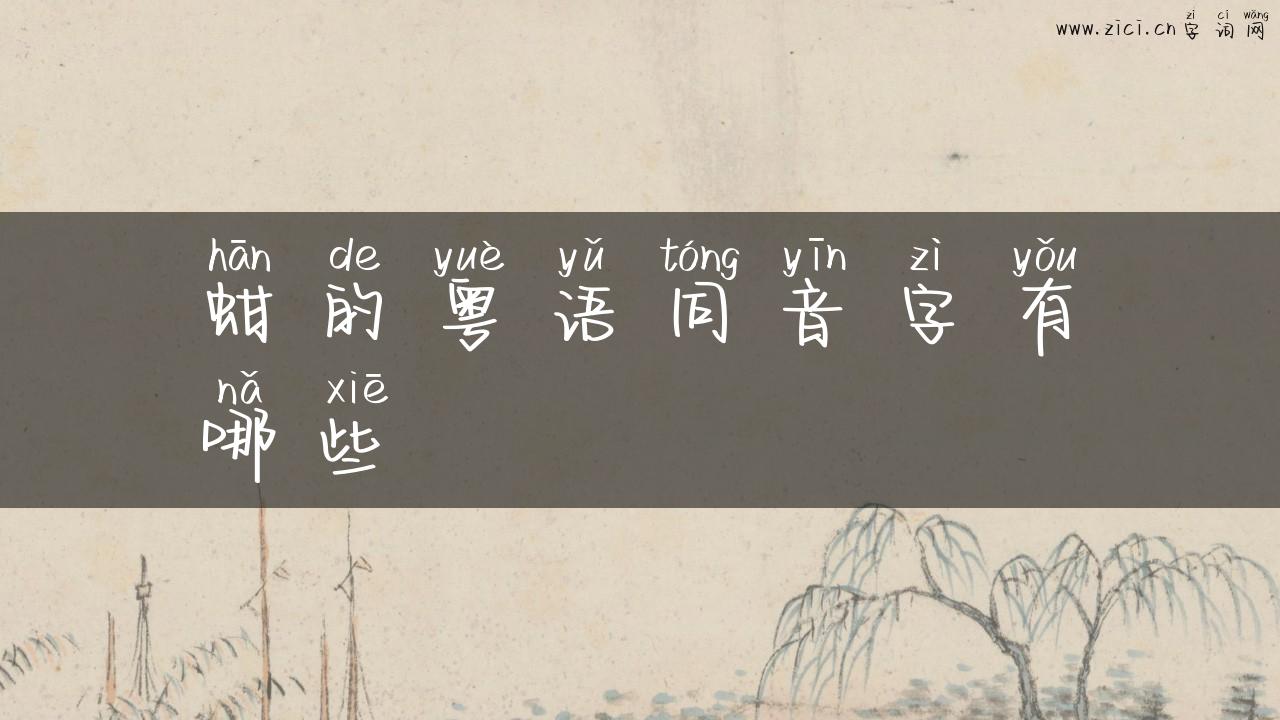 zì cí wǎng
www.zici.cn 字词网
hān de yuè yǔ tóng yīn zì yǒu
蚶的粤语同音字有
nǎ xiē
哪些